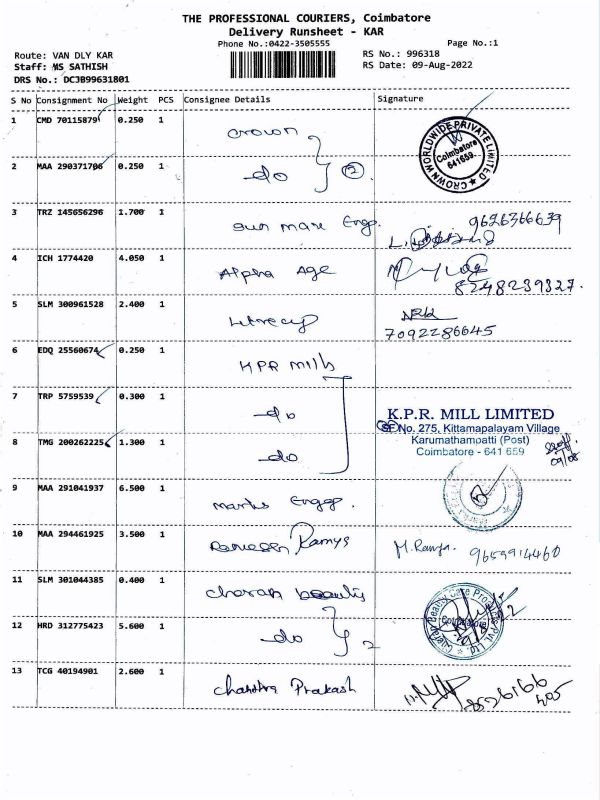 THE PROFESSIONAL COURIERS, Coimbatore
Delivery Runsheet - KAR
Phone No.:0422-3505555
Page No.:1
Route: VAN DLY KAR
RS No.: 996318
Staff: MS SATHISH
RS Date: 09-Aug-2022
DRS No.: DCJB99631801
S No Consignment No Weight PCS Consignee Details Signature
1 CMD 701158791 0.250 1 crown
CROWN WORLDWIDE PRIVATE LIMITED
Coimbatore
641659
2 MAA 290371706 0.250 1 do 2
3 TRZ 145656296 1.700 1 sun mare Engg. 9626366639
4 ICH 1774420 4.050 1 Alpha Age
8248239327.
5 SLM 300961528 2.400 1
7092286645
6 EDQ 25560674 0.250 1 KPR mills
7 TRP 5759539 0.300 1 do
K.P.R. MILL LIMITED
SF No. 275, Kittamapalayam Village
8 TMG 200262225 1.300 1 do
Karumathampatti (Post)
Coimbatore - 641 659
09/08
9 MAA 291041937 6.500 1 marks Engg.
10 MAA 294461925 3.500 1 Ramya M. Ramya. 9659914460
11 SLM 301044385 0.400 1 charan beauty
12 HRD 312775423 5.600 1 do 2
Coimbatore
13 TCG 40194901 2.600 1 Chandra Prakash